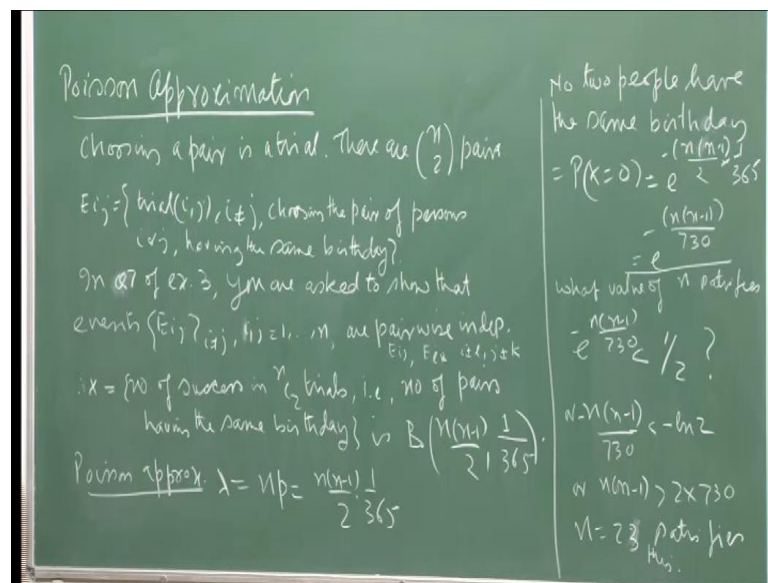 Poisson Approximation
Choosing a pair is a trial. There are (n 2) pairs
Eij = { trial (i,j), i≠j, choosing the pair of persons
i & j, having the same birthday}
In Q7 of ex. 3, you are asked to show that
events {Eij} i≠j, i,j = 1, .. n, are pairwise indep.
Eij, Eℓk i≠ℓ, j≠k
∴ X = {no of success in nC2 trials, i.e., no of pairs
having the same birthday} is B(n(n-1)/2, 1/365).
Poisson approx. λ = np = n(n-1)/2 · 1/365
No two people have
the same birthday
= P(X=0) = e^-(n(n-1)/2) · 1/365
= e^-(n(n-1)/730)
What value of n satisfies
e^-n(n-1)/730 < 1/2 ?
or -n(n-1)/730 < -ln2
or n(n-1) > 2×730
n = 23 satisfies
this.